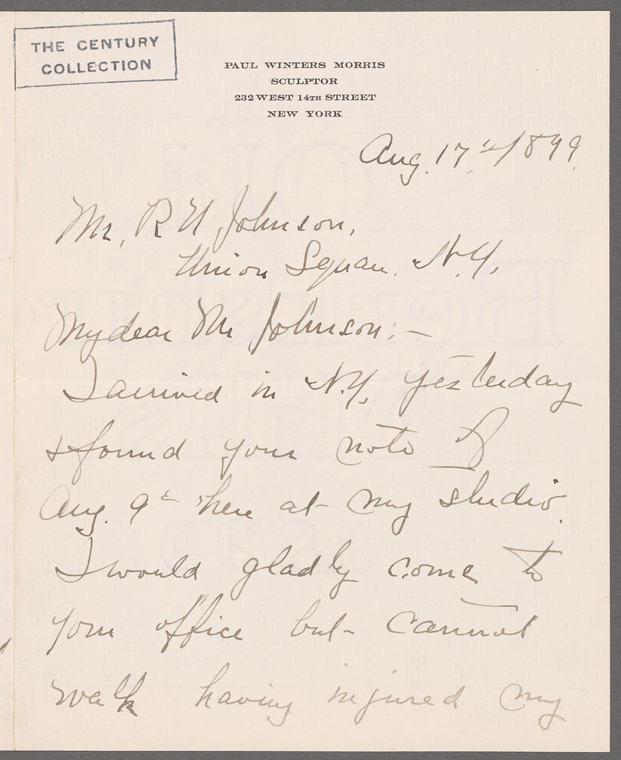 THE CENTURY
COLLECTION
PAUL WINTERS MORRIS
SCULPTOR
232 WEST 14TH STREET
NEW YORK
Aug. 17th/899
Mr. R U Johnson,
Union Square. N.Y.
My dear Mr Johnson:—
I arrived in N.Y. yesterday
& found your note of
Aug. 9th here at my studio.
I would gladly come to
your office but cannot
walk having injured my